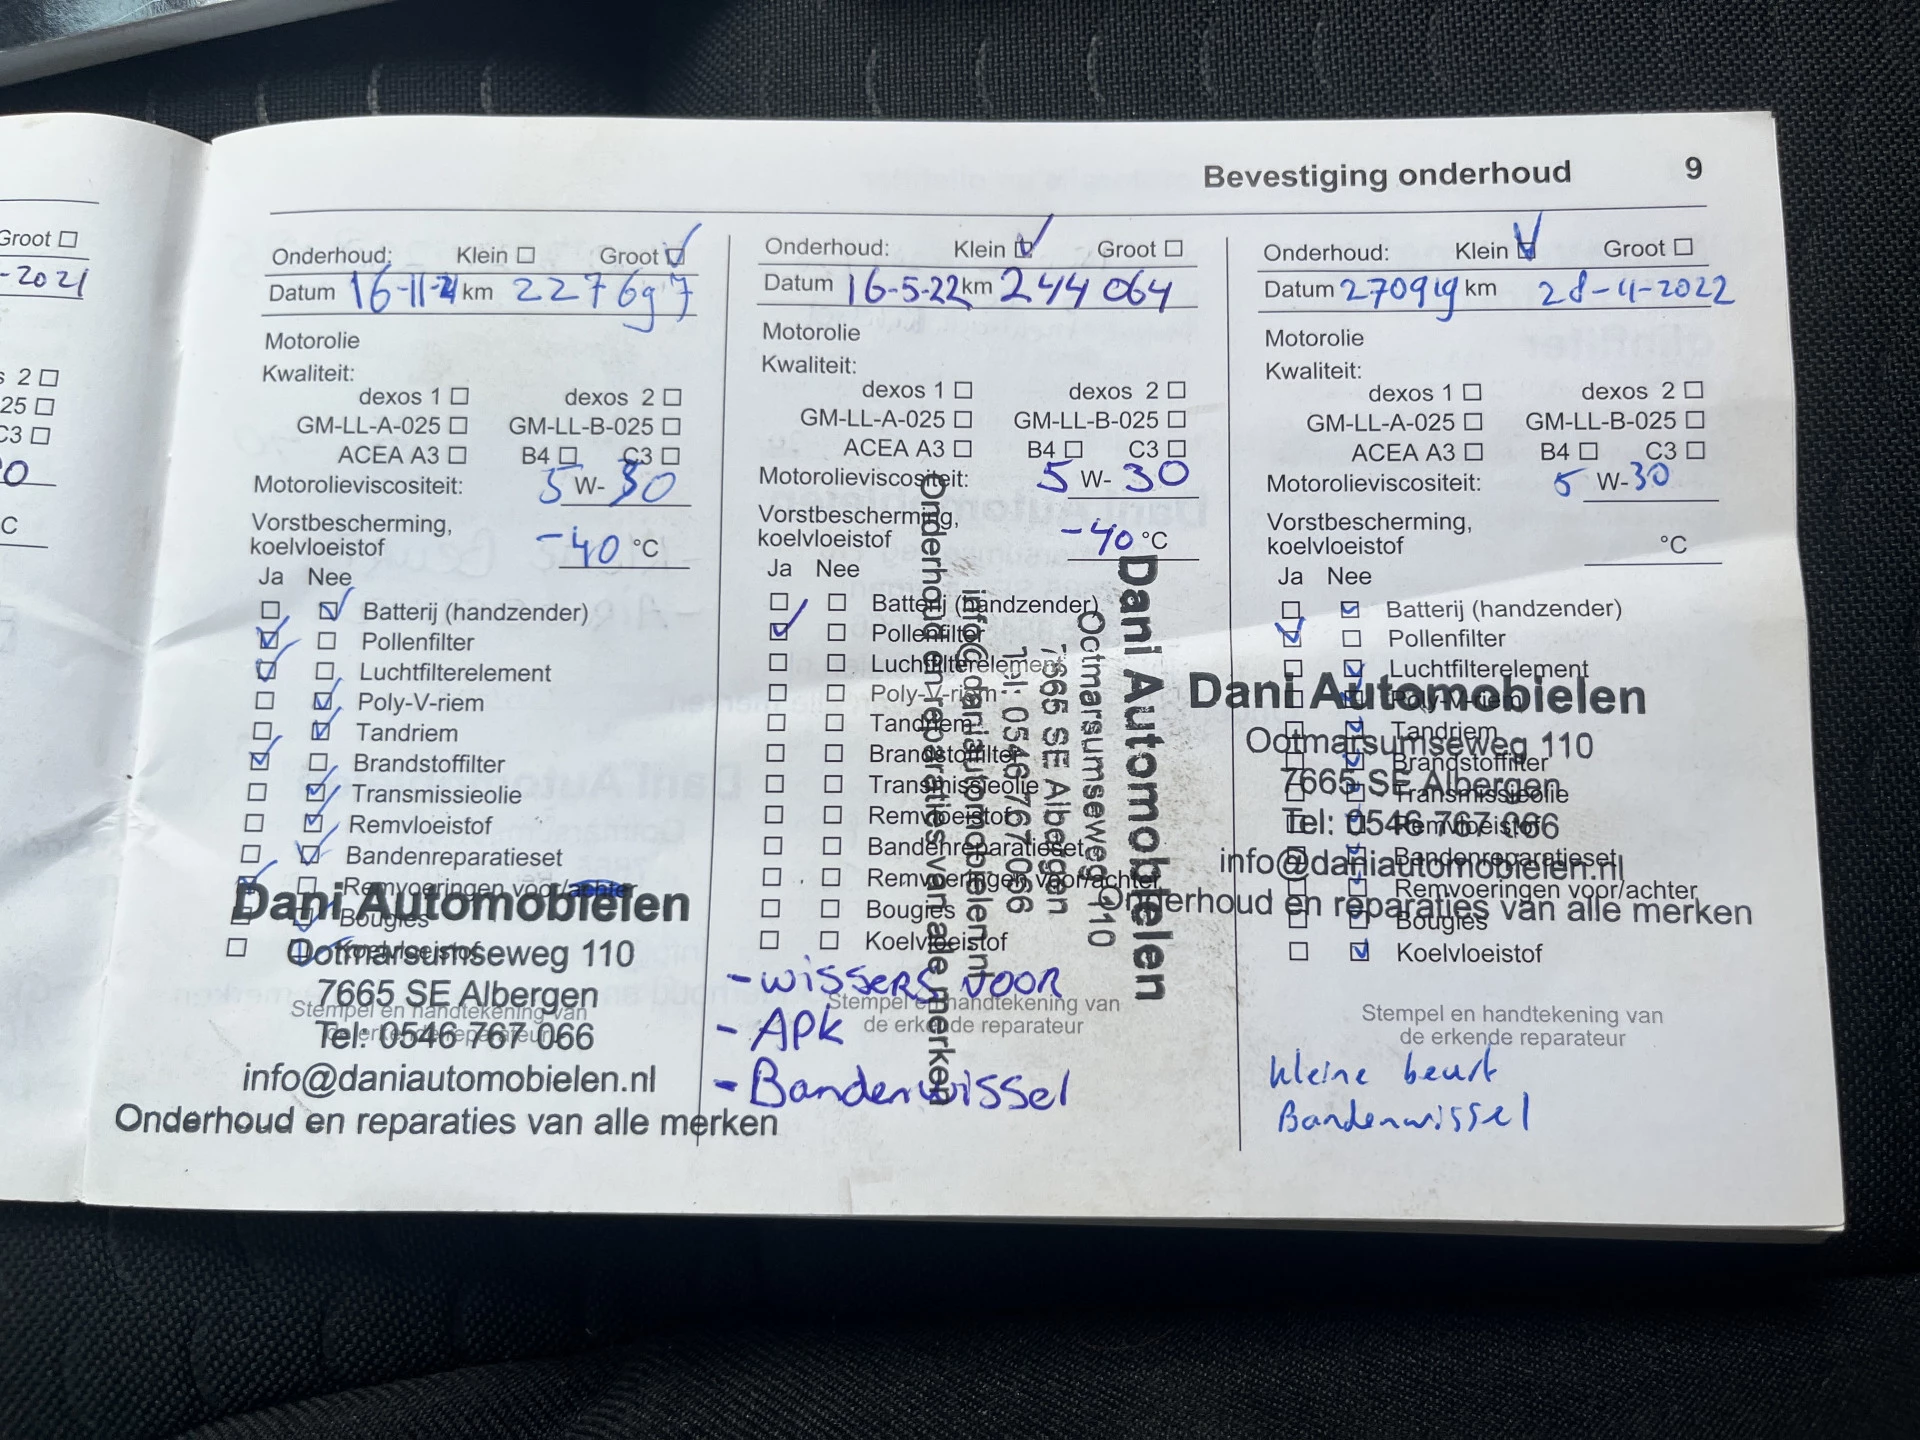 Groot
-2021
2
25
C3
0
C
Bevestiging onderhoud 9
Onderhoud: Klein Groot
Datum 16-11-21 km 227697
Motorolie
Kwaliteit:
dexos 1 dexos 2
GM-LL-A-025 GM-LL-B-025
ACEA A3 B4 C3
Motorolieviscositeit: 5 W- 30
Vorstbescherming,
koelvloeistof -40 °C
Ja Nee
Batterij (handzender)
Pollenfilter
Luchtfilterelement
Poly-V-riem
Tandriem
Brandstoffilter
Transmissieolie
Remvloeistof
Bandenreparatieset
Remvoeringen voor/achter
Bougies
Koelvloeistof
Stempel en handtekening van
de erkende reparateur
Dani Automobielen
Ootmarsumseweg 110
7665 SE Albergen
Tel: 0546 767 066
info@daniautomobielen.nl
Onderhoud en reparaties van alle merken
Onderhoud: Klein Groot
Datum 16-5-22 km 244 064
Motorolie
Kwaliteit:
dexos 1 dexos 2
GM-LL-A-025 GM-LL-B-025
ACEA A3 B4 C3
Motorolieviscositeit: 5 W- 30
Vorstbescherming,
koelvloeistof -40 °C
Ja Nee
Batterij (handzender)
Pollenfilter
Luchtfilterelement
Poly-V-riem
Tandriem
Brandstoffilter
Transmissieolie
Remvloeistof
Bandenreparatieset
Remvoeringen voor/achter
Bougies
Koelvloeistof
- wissers voor
Stempel en handtekening van
de erkende reparateur
- APK
- Bandenwissel
Dani Automobielen
Ootmarsumseweg 110
7665 SE Albergen
Tel: 0546 767 066
info@daniautomobielen.nl
Onderhoud en reparaties van alle merken
Onderhoud: Klein Groot
Datum 270919 km 28-11-2022
Motorolie
Kwaliteit:
dexos 1 dexos 2
GM-LL-A-025 GM-LL-B-025
ACEA A3 B4 C3
Motorolieviscositeit: 5 W-30
Vorstbescherming,
koelvloeistof °C
Ja Nee
Batterij (handzender)
Pollenfilter
Luchtfilterelement
Poly-V-riem
Tandriem
Brandstoffilter
Transmissieolie
Remvloeistof
Bandenreparatieset
Remvoeringen voor/achter
Bougies
Koelvloeistof
Dani Automobielen
Ootmarsumseweg 110
7665 SE Albergen
Tel: 0546 767 066
info@daniautomobielen.nl
Onderhoud en reparaties van alle merken
Stempel en handtekening van
de erkende reparateur
kleine beurt
Bandenwissel